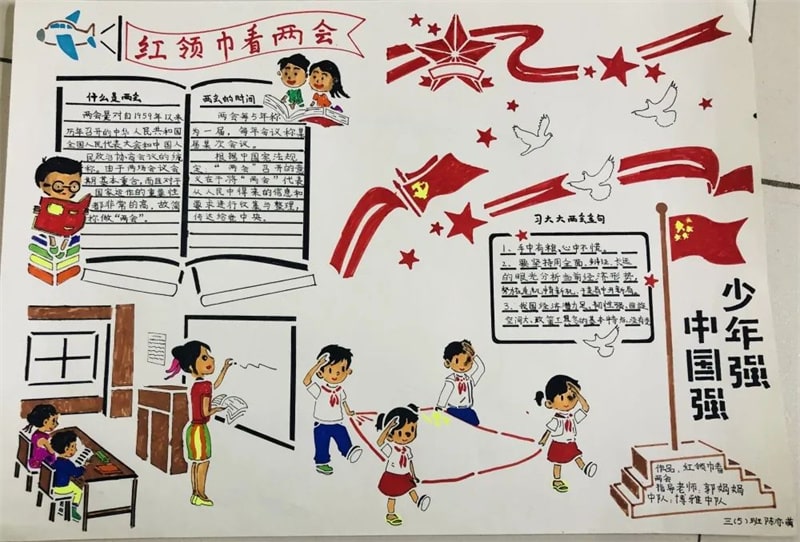 红领巾看两会
什么是两会
两会是对自1959年以来
历年召开的中华人民共和国
全国人民代表大会和中国人
民政治协商会议的统
称。由于两场会议会
期基本重合,而且对于
国家运作的重要性
都非常的高,故简
称做“两会”。
两会的时间
两会每5年称
为一届,每年会议称某
届某次会议。
根据中国宪法规
定,“两会”召开的意
义在于:将“两会”代表
从人民中得来的信息和
要求进行收集与整理,
传达给党中央。
习大大两会金句
1、手中有粮,心中不慌。
2、要坚持用全面、辩证、长远
的眼光分析当前经济形势,
努力在危机中育新机、于变局中开新局。
3、我国经济潜力足、韧性强、回旋
空间大、政策工具多的基本特点没有变
少年强
中国强
作品:红领巾看
两会
指导老师:郭妈妈
中队:博雅中队
三(5)班陈亦